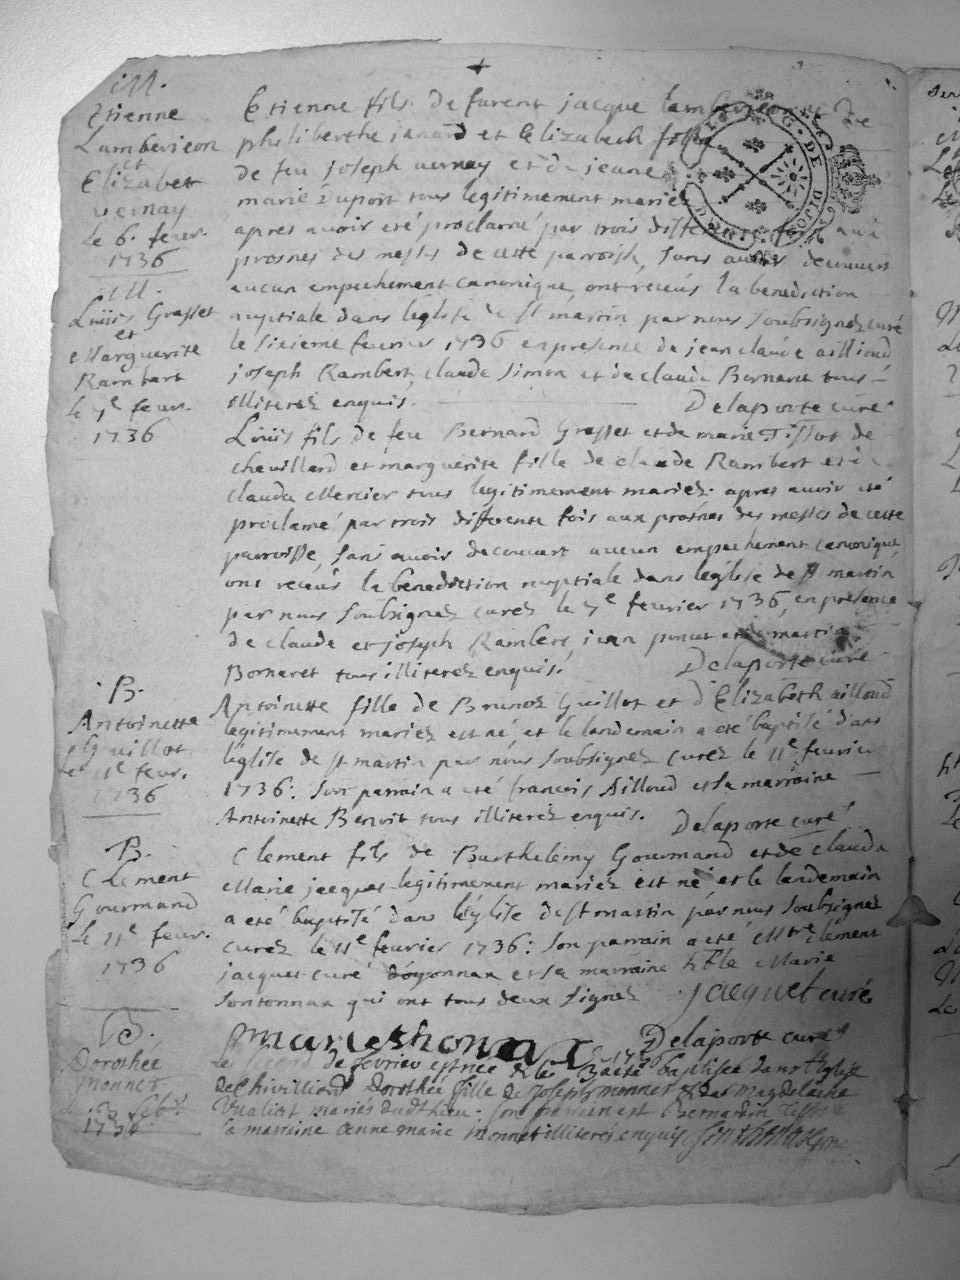 M.
Etienne
Lamberieon
et
Elizabet
vernay
Le 6e. feur.
1736
Etienne fils de furent jacque Lamberieon et de
philiberthe janard et Elizabeth fille
de feu joseph vernay et de jeane
marie Duport tous legitimement mariez
apres avoir eté proclamé par trois differente fois aux
prosnes des messes de cette parroisse, sans auoir decouuert
aucun empechement canonique, ont receüs la benediction
nuptiale dans l'église de st martin par nous soubsignez curé
le sixieme feurier 1736 en presence de jean claude ailloud
joseph Rambert, claude simon et de claude Bornaret tous
illiterez enquis. Delaporte curé
M.
Loüis Grasset
et
Marguerite
Rambert
le 7e feur.
1736
Loüis fils de feu Bernard Grasset et de marie Tissot de
cheuillard et marguerite fille de claude Rambert et de
claudu Mercier tous legitimement mariez. apres auoir eté
proclamé par trois differente fois aux prosnes des messes de cette
parroisse, sans auoir decouuert aucun empechement canonique
ont receüs la benediction nuptiale dans l'église de st martin
par nous soubsignez curez le 7e feurier 1736, en présence
de claude et joseph Rambert, jean et de martin
Bornaret tous illiterez enquis. Delaporte curé
B.
Antoinette
Guillot
le 11e feur.
1736
Antoinette fille de Brunoz Guillot et d'Elizabeth ailloud
legitimement mariez est né, et le landemain a eté baptisé dans
l'église de st martin par nous soubsignez curez le 11e feurier
1736: son parrain a eté francois Ailloud et sa marraine
Antoinette Benoit tous illiterez enquis. Delaporte curé
B.
Clement
Gourmand
le 11e feur.
1736
Clement fils de Barthelemy Gourmand et de clauda
Marie jacques legitimement mariez est né et le landemain
a eté baptisé dans l'église de st martin par nous soubsignez
curez le 11e feurier 1736: son parrain a eté Mtre clément
jacquet curé d'oyonnax et sa marraine hble Marie
sontonnax qui ont tous deux signez jacquet curé
Delaporte curé
B.
Dorothée
monnet
1736
de feurier est née et le baptisée dans l'église
de Chivilliard Dorothée fille de Joseph monnet et de Magdelaine
mariés dudt lieu. son parrain est Bernardin Tissot
sa marraine Anne marie monnet illiterés enquis